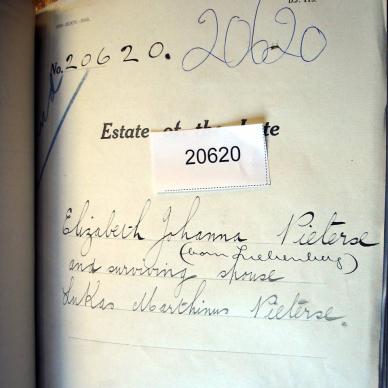 No. 20620. 20620
Estate of the Late
20620
Elizabeth Johanna Pieterse
(born Liebenberg)
and surviving spouse
Lukas Marthinus Pieterse.